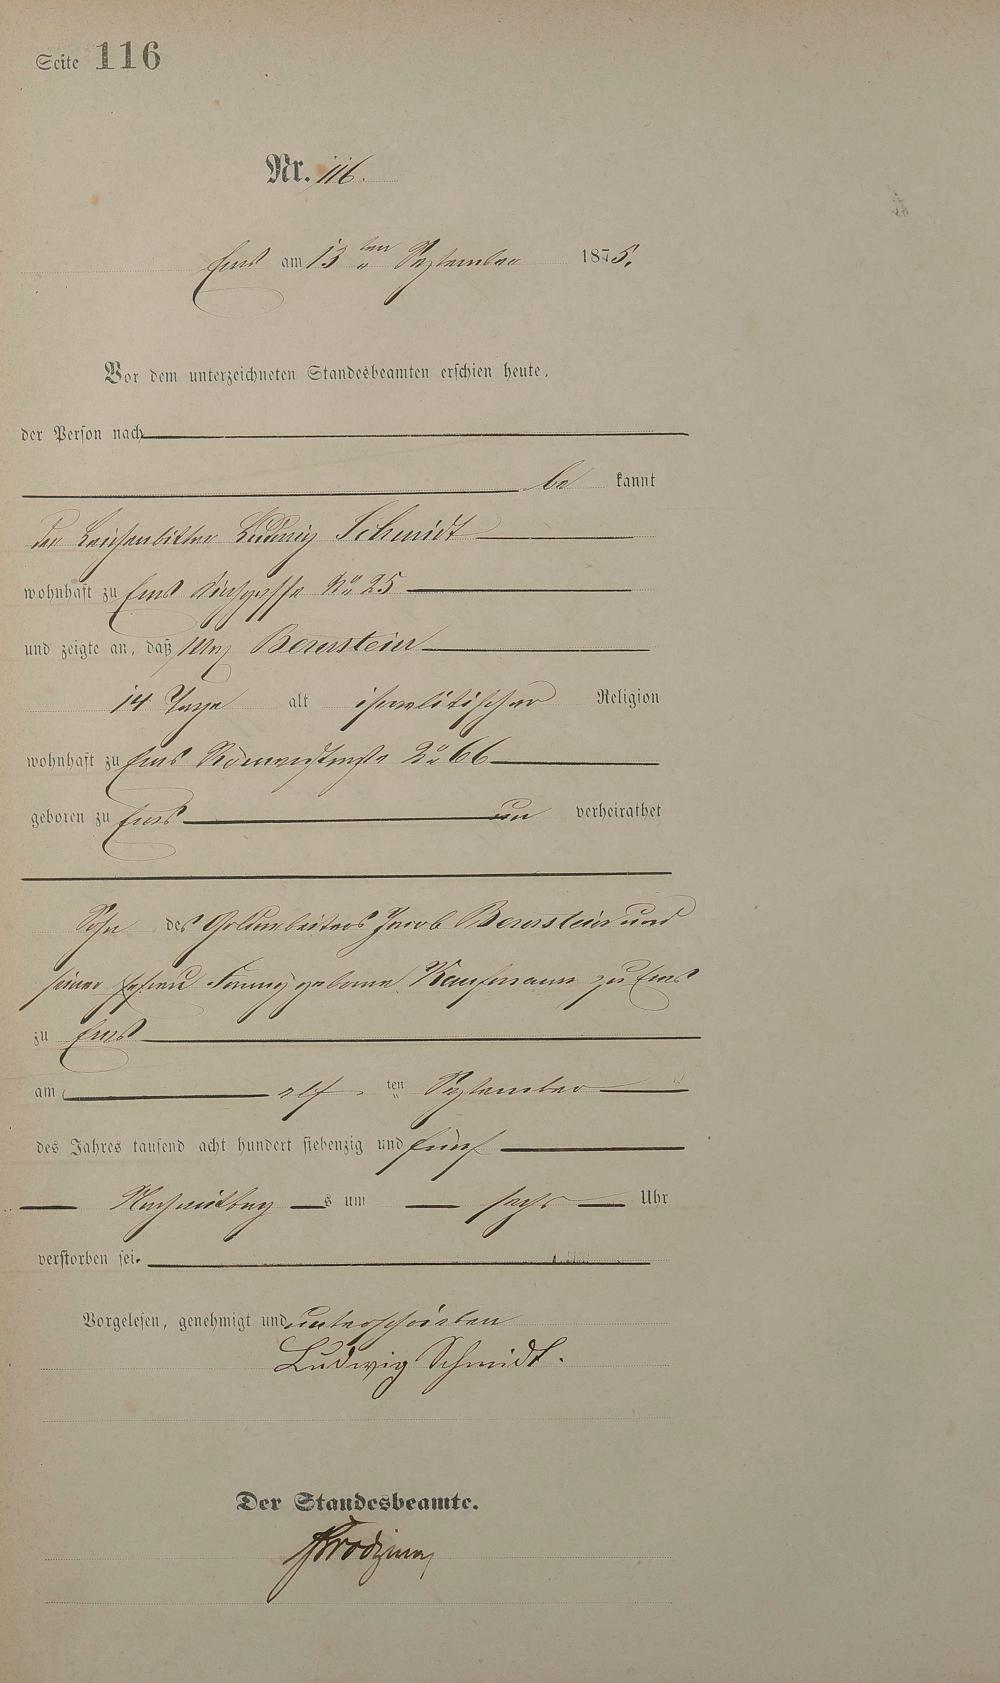 Seite 116
Nr. 116.
Ems am 13 ten September 1875.
Vor dem unterzeichneten Standesbeamten erschien heute,
der Person nach
be kannt
der Leichenbitter Ludwig Schmidt
wohnhaft zu Ems Kirchgasse No 25
und zeigte an, daß Max Bernstein
14 Tage alt israelitischer Religion
wohnhaft zu Ems Römerstraße No 66
geboren zu Ems un verheirathet
Sohn des Goldarbeiters Jacob Bernstein und
seiner Ehefrau Fanny geborne Kaufmann zu Ems
zu Ems
am elf ten September
des Jahres tausend acht hundert siebenzig und fünf
Nachmittag s um sechs Uhr
verstorben sei.
Vorgelesen, genehmigt und unterschrieben
Ludwig Schmidt.
Der Standesbeamte.